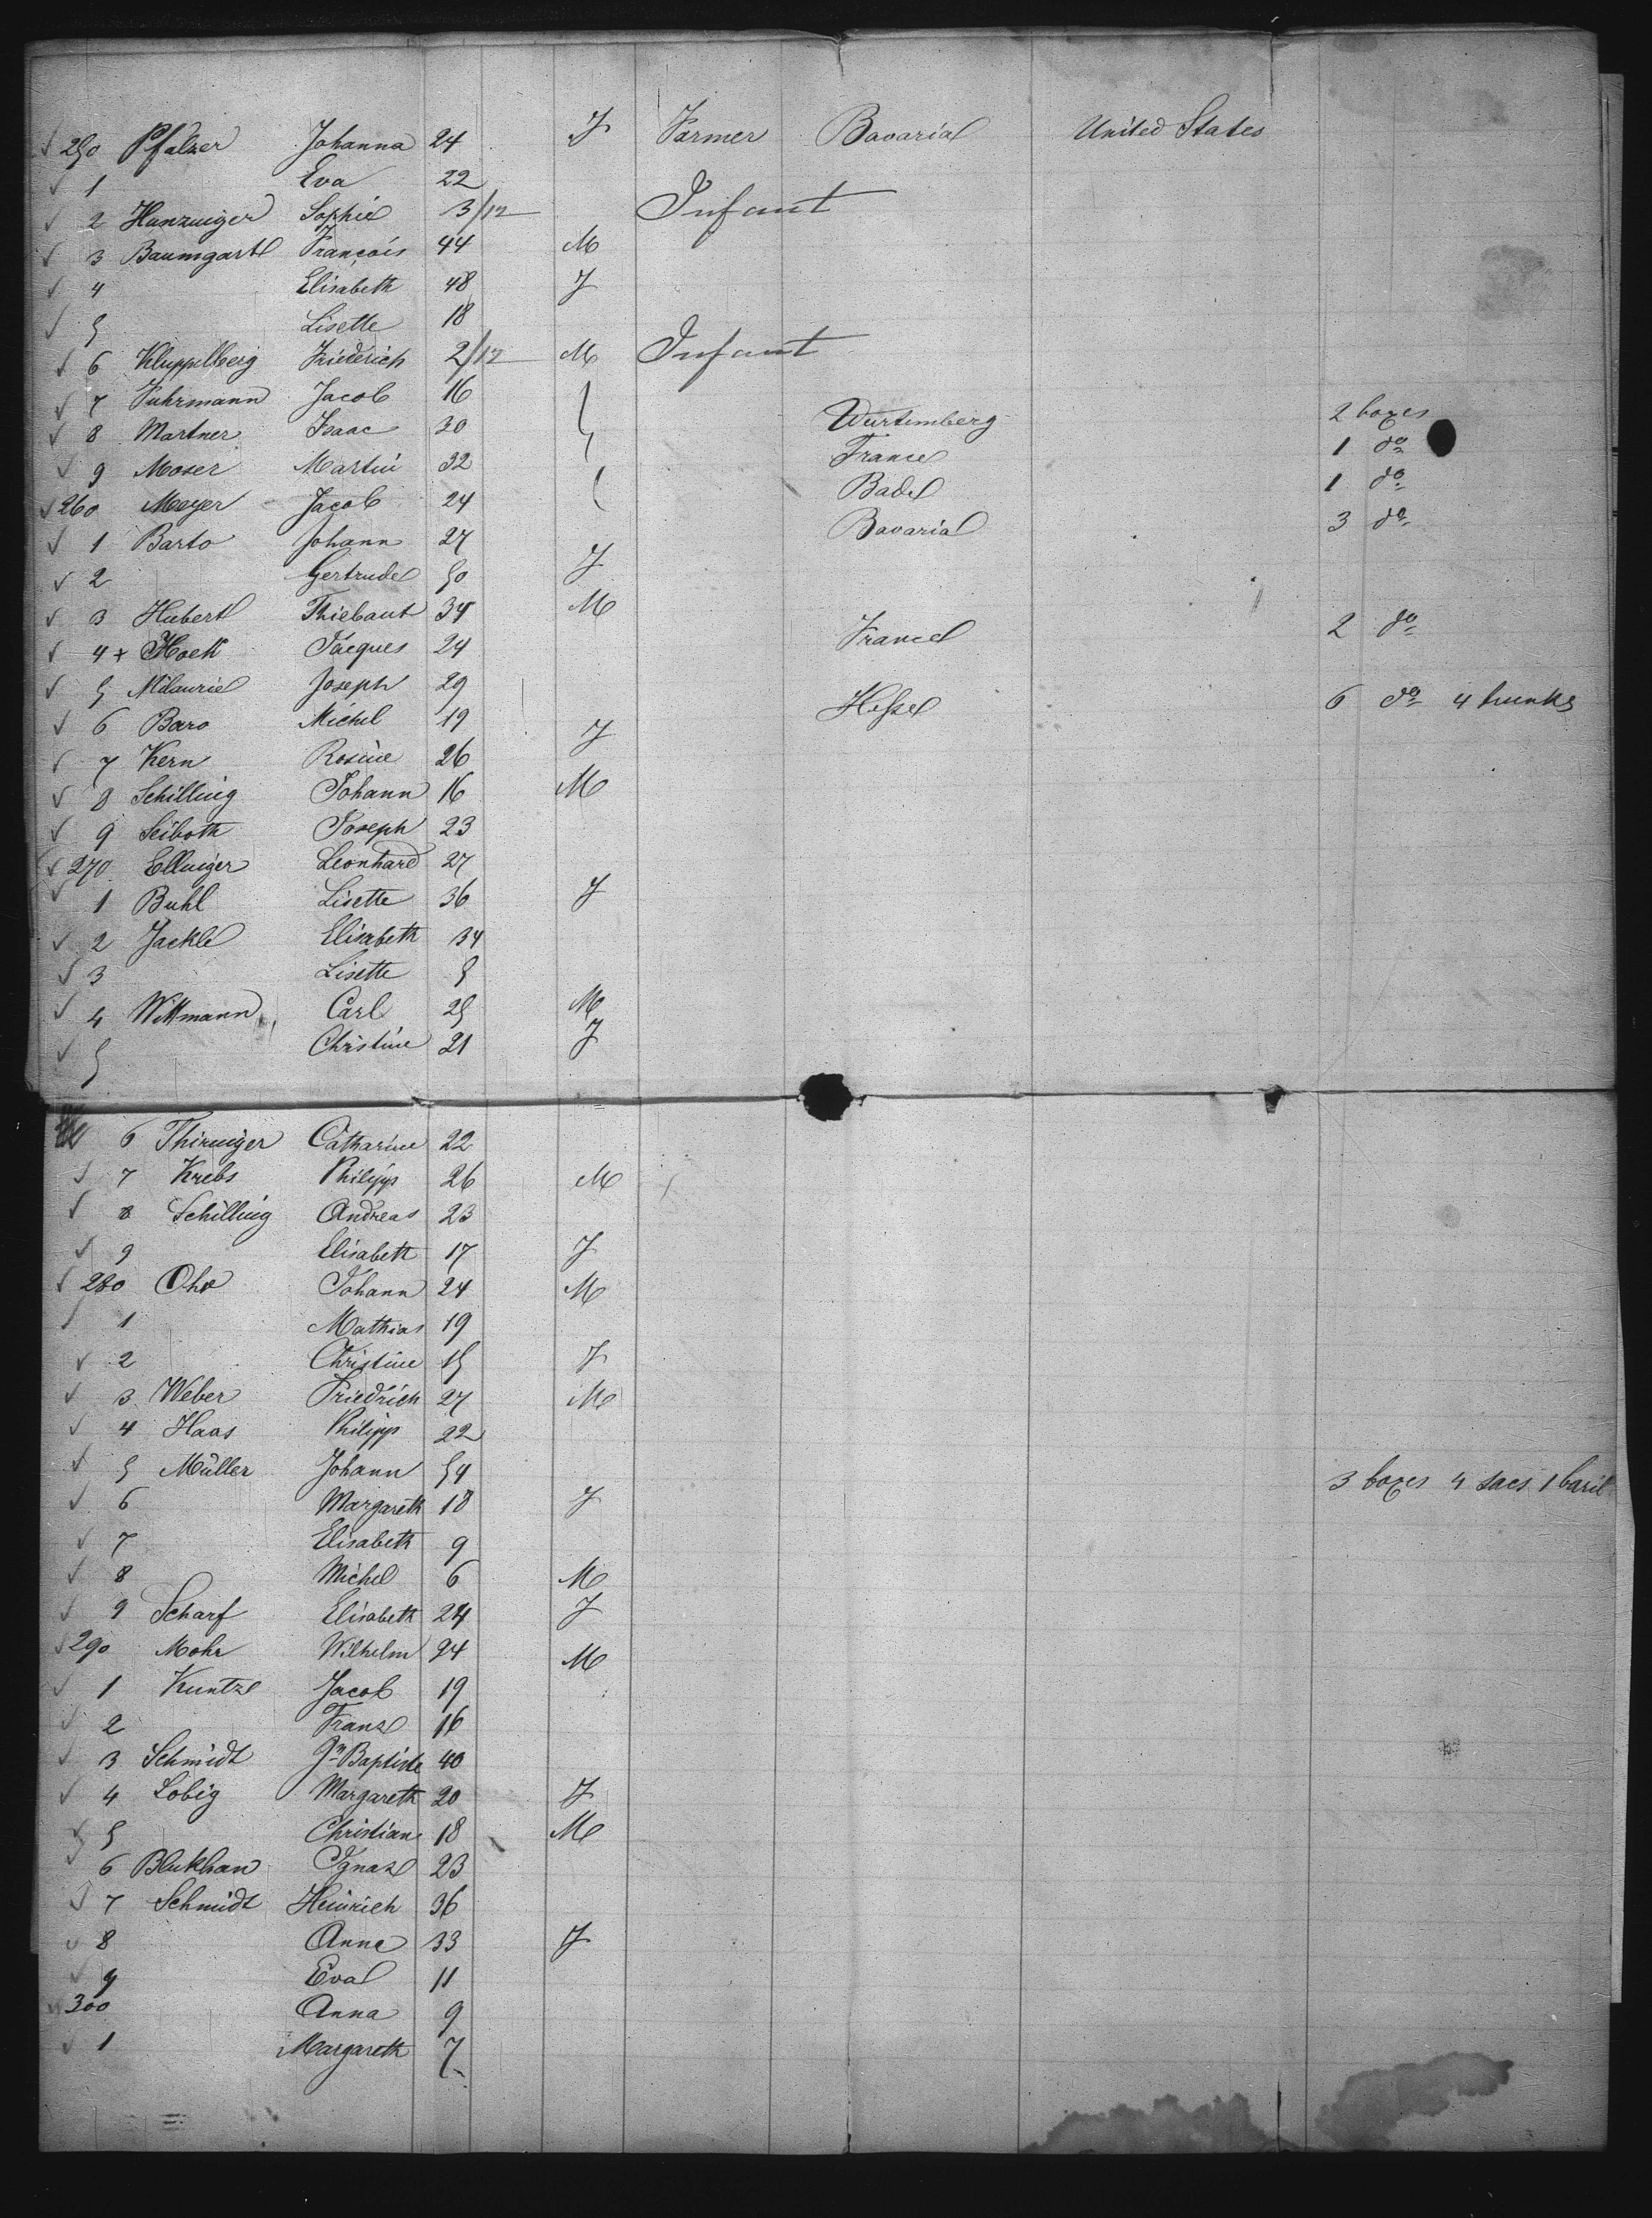 250 Pfalzer Johanna 24 F Farmer Bavaria United States
1 Eva 22
2 Sophie 3/12 Infant
3 Baumgart François 44 M
4 Elisabeth 48 F
5 Lisette 18
6 Kluppelberg Friederich 2/12 M Infant
7 Fuhrmann Jacob 16
8 Martner Isaac 30 Wurtemberg 2 boxes
9 Moser Martin 32 France 1 do
260 Meyer Jacob 24 Bade 1 do
1 Barto Johann 27 Bavaria 3 do
2 Gertrude 50 F
3 Hubert Thiebaut 34 M
4 + Hoek Jacques 24 France 2 do
5 Joseph 29
6 Baro Michel 19 Hesse 6 do 4 trunks
7 Kern Rosine 26 F
8 Schilling Johann 16 M
9 Seiboth Joseph 23
270 Ellinger Leonhard 27
1 Buhl Lisette 36 F
2 Jackle Elisabeth 34
3 Lisette 5
4 Wittmann Carl 25 M
5 Christine 21 F
6 Thiringer Catharine 22
7 Krebs Philipp 26 M
8 Schilling Andreas 23
9 Elisabeth 17 F
280 Ohr Johann 24 M
1 Mathias 19
2 Christine 15 F
3 Weber Friedrich 27 M
4 Haas Philipp 22
5 Müller Johann 54 3 boxes 4 sacs 1 baril
6 Margareth 18 F
7 Elisabeth 9
8 Michel 6 M
9 Scharf Elisabeth 24 F
290 Mohr Wilhelm 24 M
1 Kuntz Jacob 19
2 Franz 16
3 Schmidt Jn Baptiste 40
4 Lobig Margareth 20 F
5 Christian 18 M
6 Blukhan Ignaz 23
7 Schmidt Heinrich 36
8 Anne 33 F
9 Eva 11
300 Anna 9
1 Margareth 7